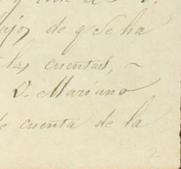 de q Se ha
las cuentas, ~
D. Mariano
de cuenta de la